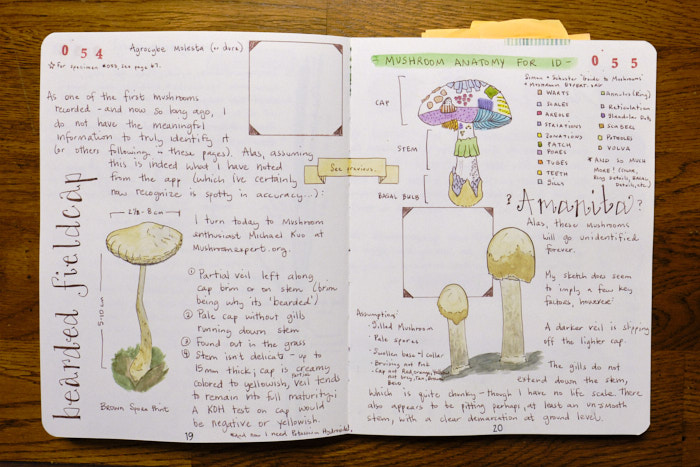 054
Agrocybe Molesta (or dura)
☆ For specimen #053, see page 67.
As one of the first mushrooms
recorded - and now so long ago, I
do not have the meaningful
information to truly identify it
(or others following in these pages). Alas, assuming
this is indeed what I have noted
from the app (which I've certainly
now recognize is spotty in accuracy...):
See previous.
bearded fieldcap
2 1/8 - 8 cm
5-10 cm
Brown Spore Print
I turn today to Mushroom
enthusiast Michael Kuo at
Mushroomexpert.org.
① Partial veil left along
cap brim or on stem (brim
being why its 'bearded')
② Pale cap without gills
running down stem
③ Found in the grass
④ Stem isn't delicate - up to
15mm thick; cap is creamy
colored to yellowish, veil tends
to remain into full maturity;
A KOH test on cap would
be negative or yellowish.
*And now I need Potassium Hydroxide!
19
- MUSHROOM ANATOMY FOR ID -
055
Simon + Schuster "Guide to Mushrooms"
+ Mushroom Expert.
CAP
STEM
BASAL BULB
WARTS
SCALES
AREOLE
STRIATIONS
ZONATIONS
PATCH
PORES
TUBES
TEETH
GILLS
Annulus (Ring)
Reticulation
Glandular Dots
SCABERS
POTHOLES
VOLVA
* AND SO MUCH
MORE! (Color,
Ring Details, Basal
Details, etc.)
? Amanita ?
Alas, these mushrooms
will go unidentified
forever.
My sketch does seem
to imply a few key
factors, however:
A darker veil is slipping
off the lighter cap.
The gills do not
extend down the stem,
which is quite chunky - though I have no life scale. There
also appears to be pitting perhaps, at least an un-smooth
stem, with a clear demarcation at ground level.
Assumptions:
- Gilled Mushroom
- Pale spores
- Swollen base + collar
- Bruising not Pink
- Cap not Red, orange, yellow
not Gray, Tan, Brown
20